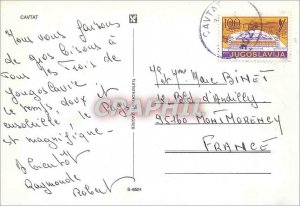 CAVTAT
Nous vous faisons
de gros bisous à
tous les trois de
Yougoslavie
le temps doux et
ensoleillé
est magnifique
A bientôt
Raymonde
Robert
CAVTAT
100
JUGOSLAVIJA
Marc BINET
95160 MONTMORENCY
FRANCE